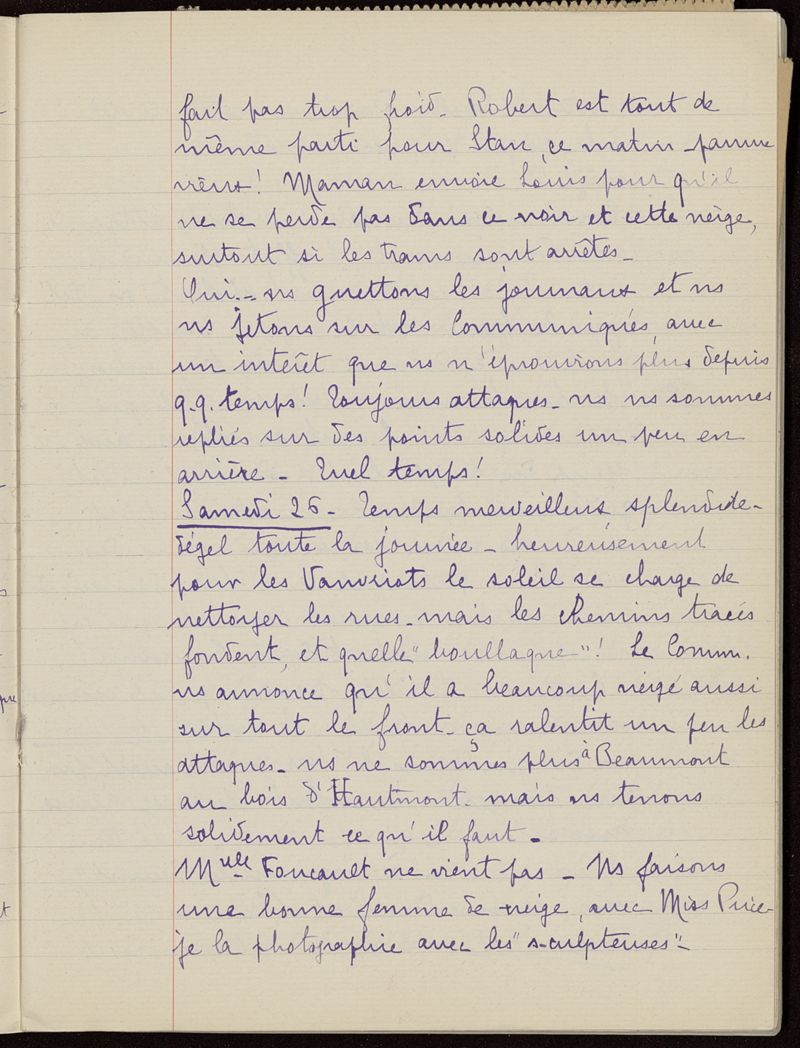 fait pas trop froid. Robert est tout de
même parti pour Stan, ce matin - pauvre
vieux! Maman envoie Louis pour qu'il
ne se perde pas dans ce noir et cette neige,
surtout si les trams sont arrêtés -
Oui - ns guettons les journaux et ns
ns jetons sur les Communiqués, avec
un intérêt que ns n'éprouvions plus depuis
q.q. temps! Toujours attaques - ns ns sommes
repliés sur des points solides un peu en
arrière - Quel temps!
Samedi 26 - Temps merveilleux splendide -
dégel toute la journée - heureusement
pour les Vanvriots le soleil se charge de
nettoyer les rues - mais les chemins tracés
fondent, et quelle "bouillaque"! Le Comm.
ns annonce qu'il a beaucoup neigé aussi
sur tout le front - ça ralentit un peu les
attaques - ns ne sommes plus à Beaumont
au bois d'Hautmont - mais ns tenons
solidement ce qu'il faut -
Melle Foucault ne vient pas - Ns faisons
une bonne femme de neige, avec Miss Price -
je la photographie avec les "sculpteuses" -